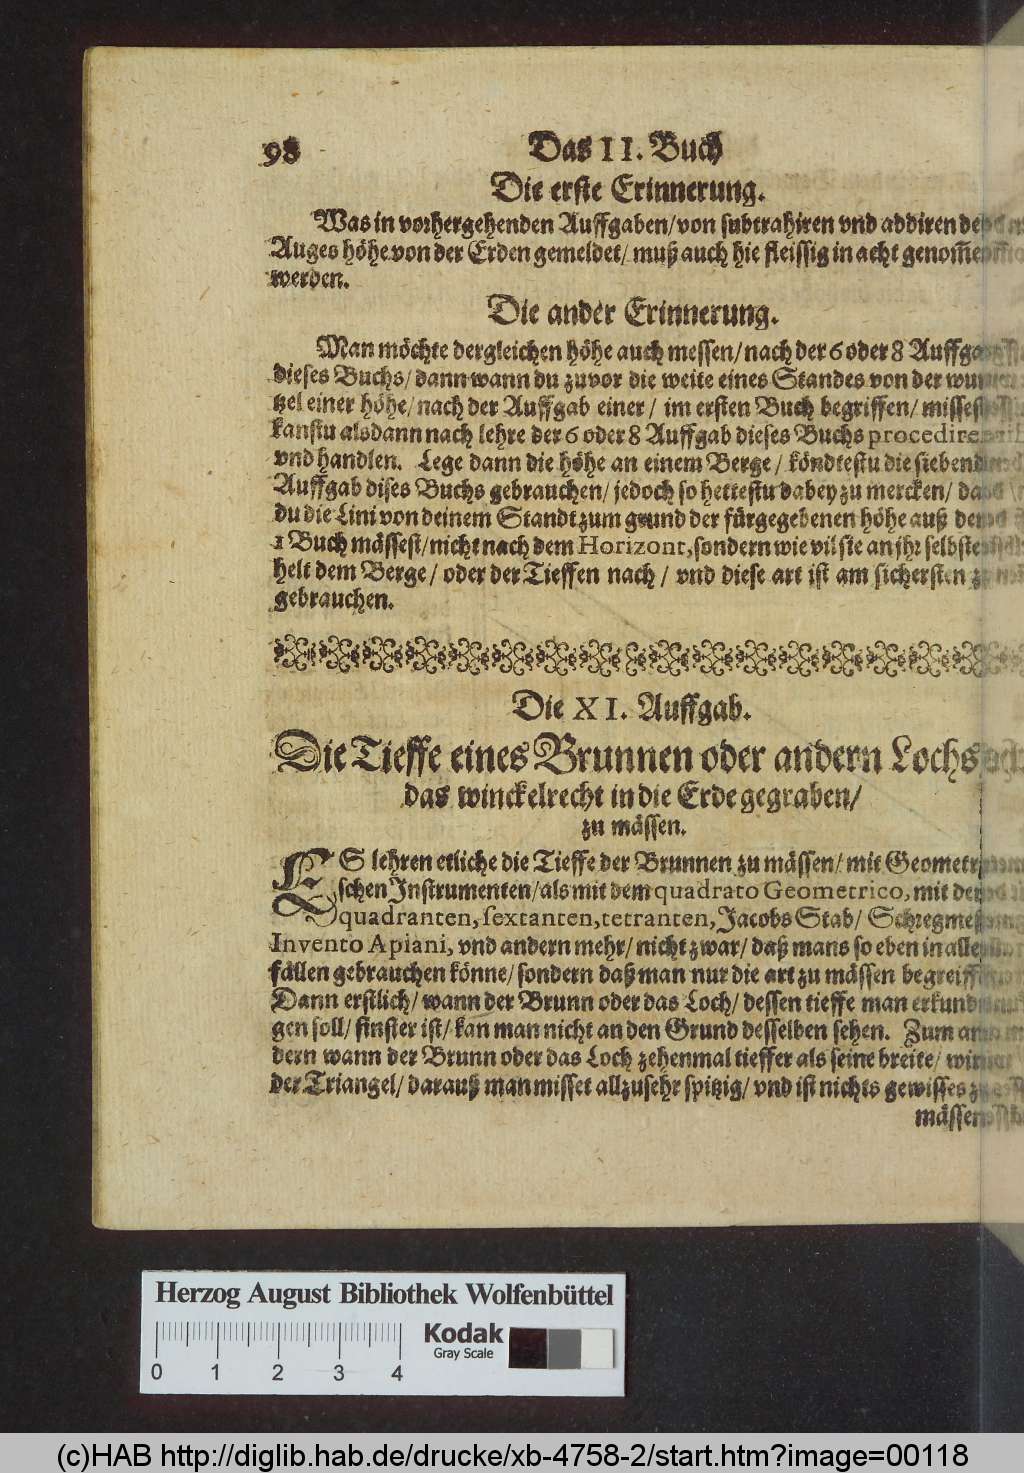 98 Das II. Buch
Die erste Erinnerung.
Was in vorhergehenden Auffgaben/ von subtrahiren vnd addiren
Auges höhe von der Erden gemeldet/ muß auch hie fleissig in acht genom̃en
werden.
Die ander Erinnerung.
Man möchte dergleichen höhe auch messen/ nach der 6 oder 8 Auffgab
dieses Buchs/ dann wann du zuvor die weite eines Standes von der wur-
tzel einer höhe/ nach der Auffgab einer/ im ersten Buch begriffen/ missest
kanstu alsdann nach lehre der 6 oder 8 Auffgab dieses Buchs procediren
vnd handlen. Lege dann die höhe an einem Berge/ köndtestu die siebende
Auffgab dises Buchs gebrauchen/ jedoch so hettestu dabey zu mercken/ daß
du die Lini von deinem Standt zum grund der fürgegebenen höhe auß dem
1 Buch mässest/ nicht nach dem Horizont, sondern wie vil sie an jhr selbsten
helt dem Berge/ oder der Tieffen nach/ vnd diese art ist am sichersten zu
gebrauchen.
Die XI. Auffgab.
Die Tieffe eines Brunnen oder andern Lochs
das winckelrecht in die Erde gegraben/
zu mässen.
ES lehren etliche die Tieffe der Brunnen zu mässen/ mit Geometri-
schen Instrumenten/ als mit dem quadrato Geometrico, mit den
quadranten, sextanten, tetranten, Jacobs Stab/
Invento Apiani, vnd andern mehr/ nicht zwar/ daß mans so eben in allen
fällen gebrauchen könne/ sondern daß man nur die art zu mässen begreiffe
Dann erstlich/ wann der Brunn oder das Loch/ dessen tieffe man erkundi-
gen soll/ finster ist/ kan man nicht an den Grund desselben sehen. Zum an-
dern wann der Brunn oder das Loch zehenmal tieffer als seine breite/ wird
der Triangel/ darauß man misset allzusehr spitzig/ vnd ist nichts gewisses zu
mässen
Herzog August Bibliothek Wolfenbüttel
Kodak
Gray Scale
0 1 2 3 4
(c)HAB http://diglib.hab.de/drucke/xb-4758-2/start.htm?image=00118